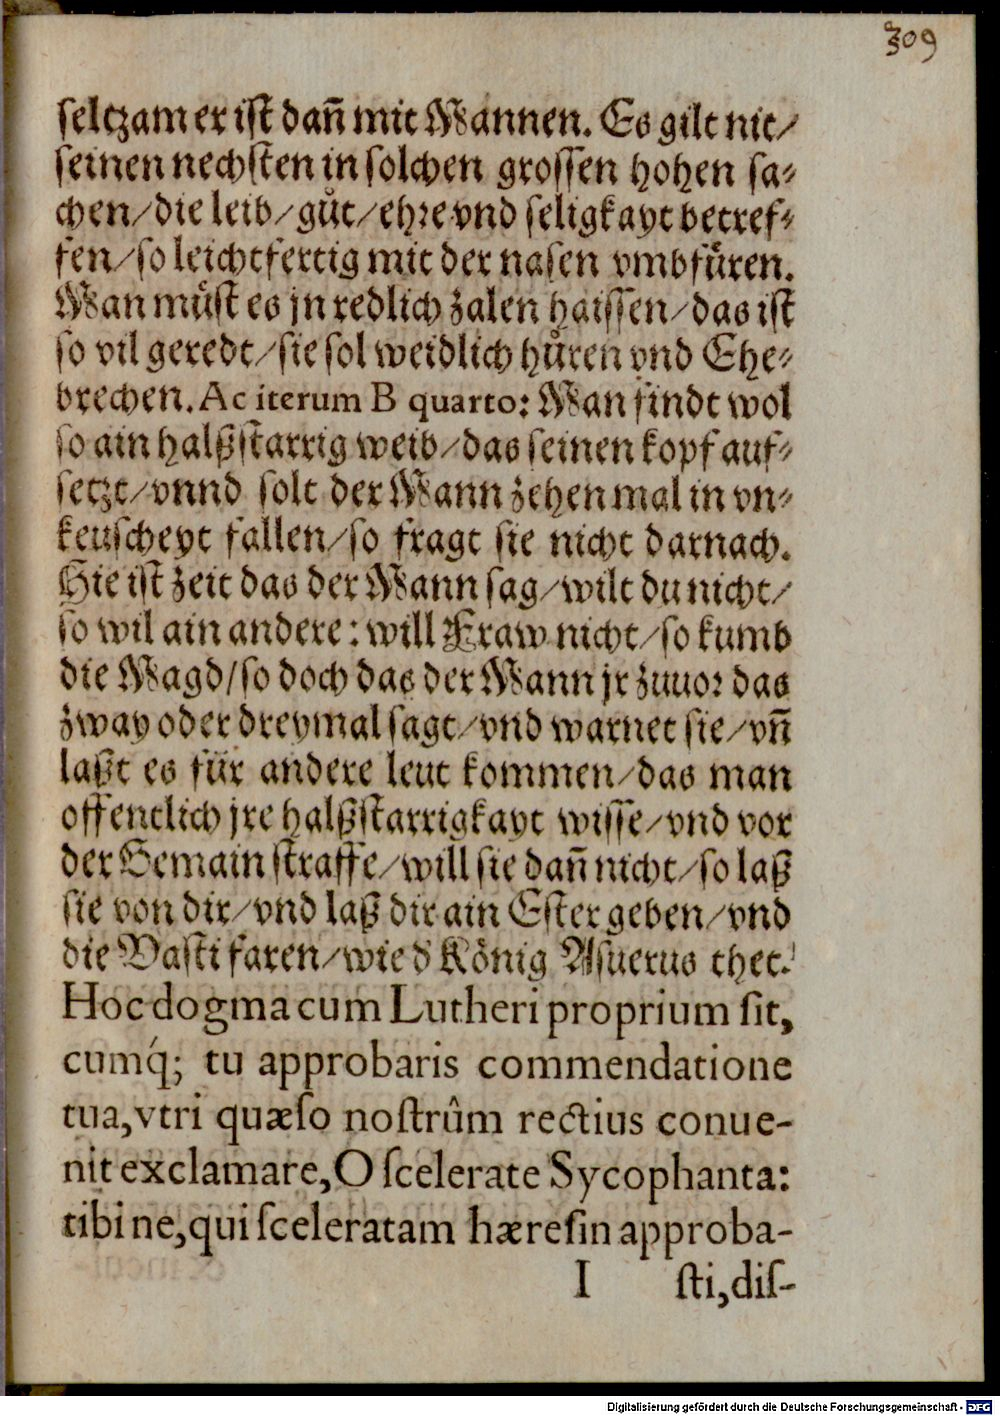 309
seltzam er ist dañ mit Mannen. Es gilt nit/
seinen nechsten in solchen grossen hohen sa⸗
chen/die leib/gůt/ehre vnd seligkayt betref⸗
fen/so leichtfertig mit der nasen vmbfüren.
Man můst es jn redlich zalen haissen/das ist
so vil geredt/sie sol weidlich hůren vnd Ehe⸗
brechen. Ac iterum B quarto: Man findt wol
so ain halßstarrig weib/das seinen kopf auf⸗
setzt/vnnd solt der Mann zehen mal in vn⸗
keuscheyt fallen/so fragt sie nicht darnach.
Hie ist zeit das der Mann sag/wilt du nicht/
so wil ain andere: will Fraw nicht/so kumb
die Magd/so doch das der Mann jr zuuor das
zway oder dreymal sagt/vnd warnet sie/vñ
laßt es für andere leut kommen/das man
offentlich jre halßstarrigkayt wisse/vnd vor
der Gemain straffe/will sie dañ nicht/so laß
sie von dir/vnd laß dir ain Ester geben/vnd
die Vasti faren/wie d' König Asuerus thet.
Hoc dogma cum Lutheri proprium ſit,
cumq́; tu approbaris commendatione
tua,vtri quæſo noſtrûm rectius conue-
nit exclamare,O ſcelerate Sycophanta:
tibi ne,qui ſceleratam hæreſin approba-
I ſti,diſ-
Digitalisierung gefördert durch die Deutsche Forschungsgemeinschaft - DFG